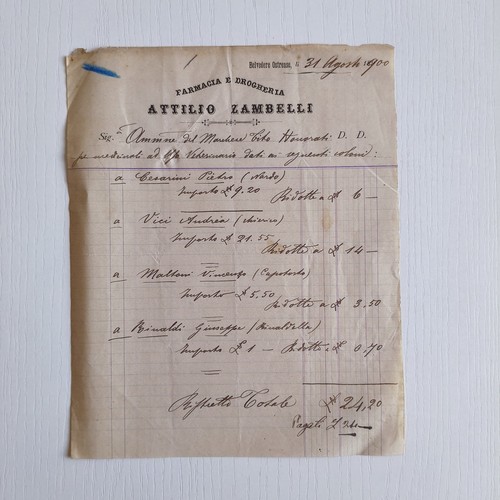 1
Belvedere Ostrense, li 31 Agosto 1900
FARMACIA E DROGHERIA
ATTILIO ZAMBELLI
Sig.r Ammne del Marchese Tito Honorati D. D.
pe medicinali ad uso Veterinario dati ai seguenti coloni:
a Cesarini Pietro (Nardo)
Importo £ 9.20
Ridotte a £ 6 —
a Vici Andrea (Chierico)
Importo £ 21.55
Ridotte a £ 14 —
a Mattoni Vincenzo (Capotosto)
Importo £ 5.50
Ridotte a £ 3.50
a Rinaldi Giuseppe (Rinaldella)
Importo £ 1 — Ridotte a £ 0.70
Ristretto Totale 24,20
Pagate £ 24 —